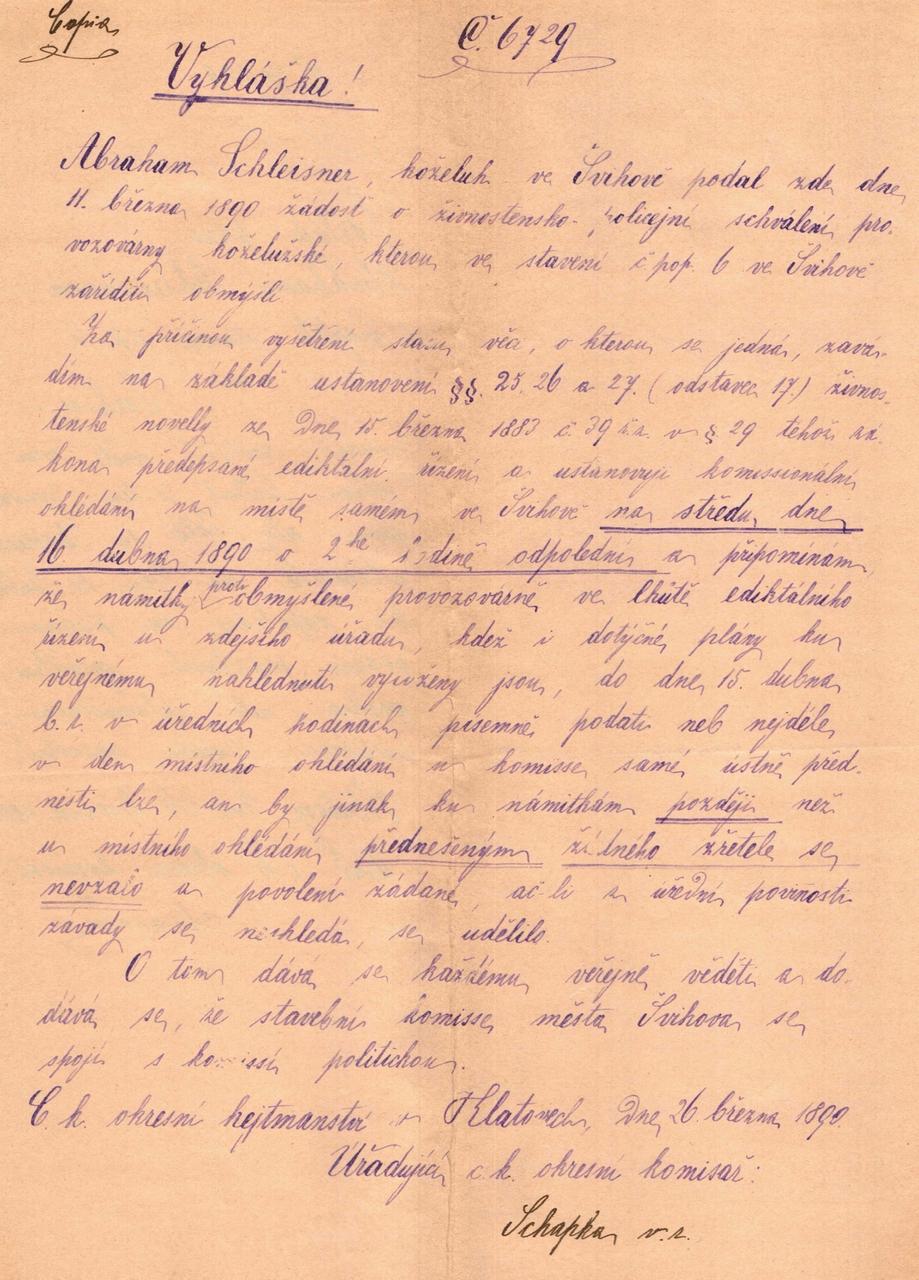 Copia
Č. 6729
Vyhláška!
Abraham Schleisner, koželuh ve Švihově podal zde dne
11. března 1890 žádosť o živnostensko-policejní schválení pro-
vozovárny koželužské, kterou ve stavení č pop. 6 ve Švihově
zaříditi obmýšlí
Za příčinou vyšetření stavu věci, o kterou se jedná, zavá-
dím na základě ustanovení §§. 25, 26 a 27. (odstavec 17.) živnos-
tenské novelly ze dne 15. března 1883 č. 39 ř.z. v § 29 tehož zá-
kona předepsané ediktální řízení a ustanovuji komissionální
ohledání na místě samém ve Švihově na středu dne
16 dubna 1890 o 2hé hodině odpolední a připomínám,
že námitky proti obmýšlené provozovárně ve lhůtě ediktálního
řízení u zdejšího úřadu, kdež i dotýčné plány ku
veřejnému nahlédnutí vyloženy jsou, do dne 15. dubna
b.r. v úředních hodinách písemně podati neb nejdéle
v den místního ohledání u komisse samé ústně před-
nésti lze, an by jinak ku námitkám později než
u místního ohledání přednešeným žádného zřetele se
nevzalo a povolení žádané, ač-li z úřední povinosti
závady se neshledá, se udělilo.
O tom dává se každému veřejně věděti a do-
dává se, že stavební komisse města Švihova se
spojí s komissí politickou.
C. k. okresní hejtmanství v Klatovech, dne 26. března 1890.
Úřadující c. k. okresní komisař:
Schapka v. r.